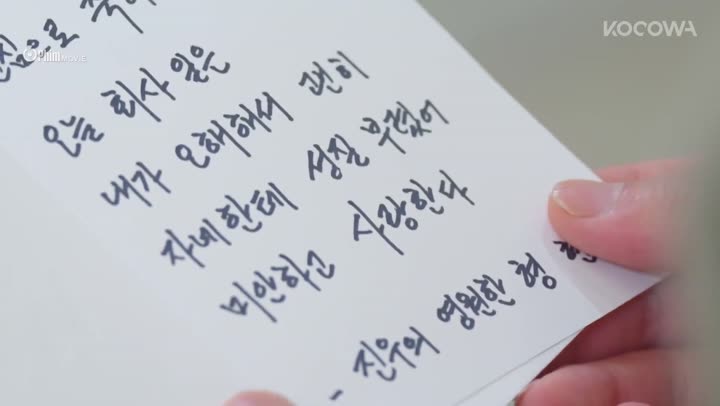 진심으로
오늘 회사 일은
내가 오해해서 괜히
자네한테 성질 부렸어
미안하고 사랑한다
- 진우의 영원한 형
KOCOWA
Phim MOVIE